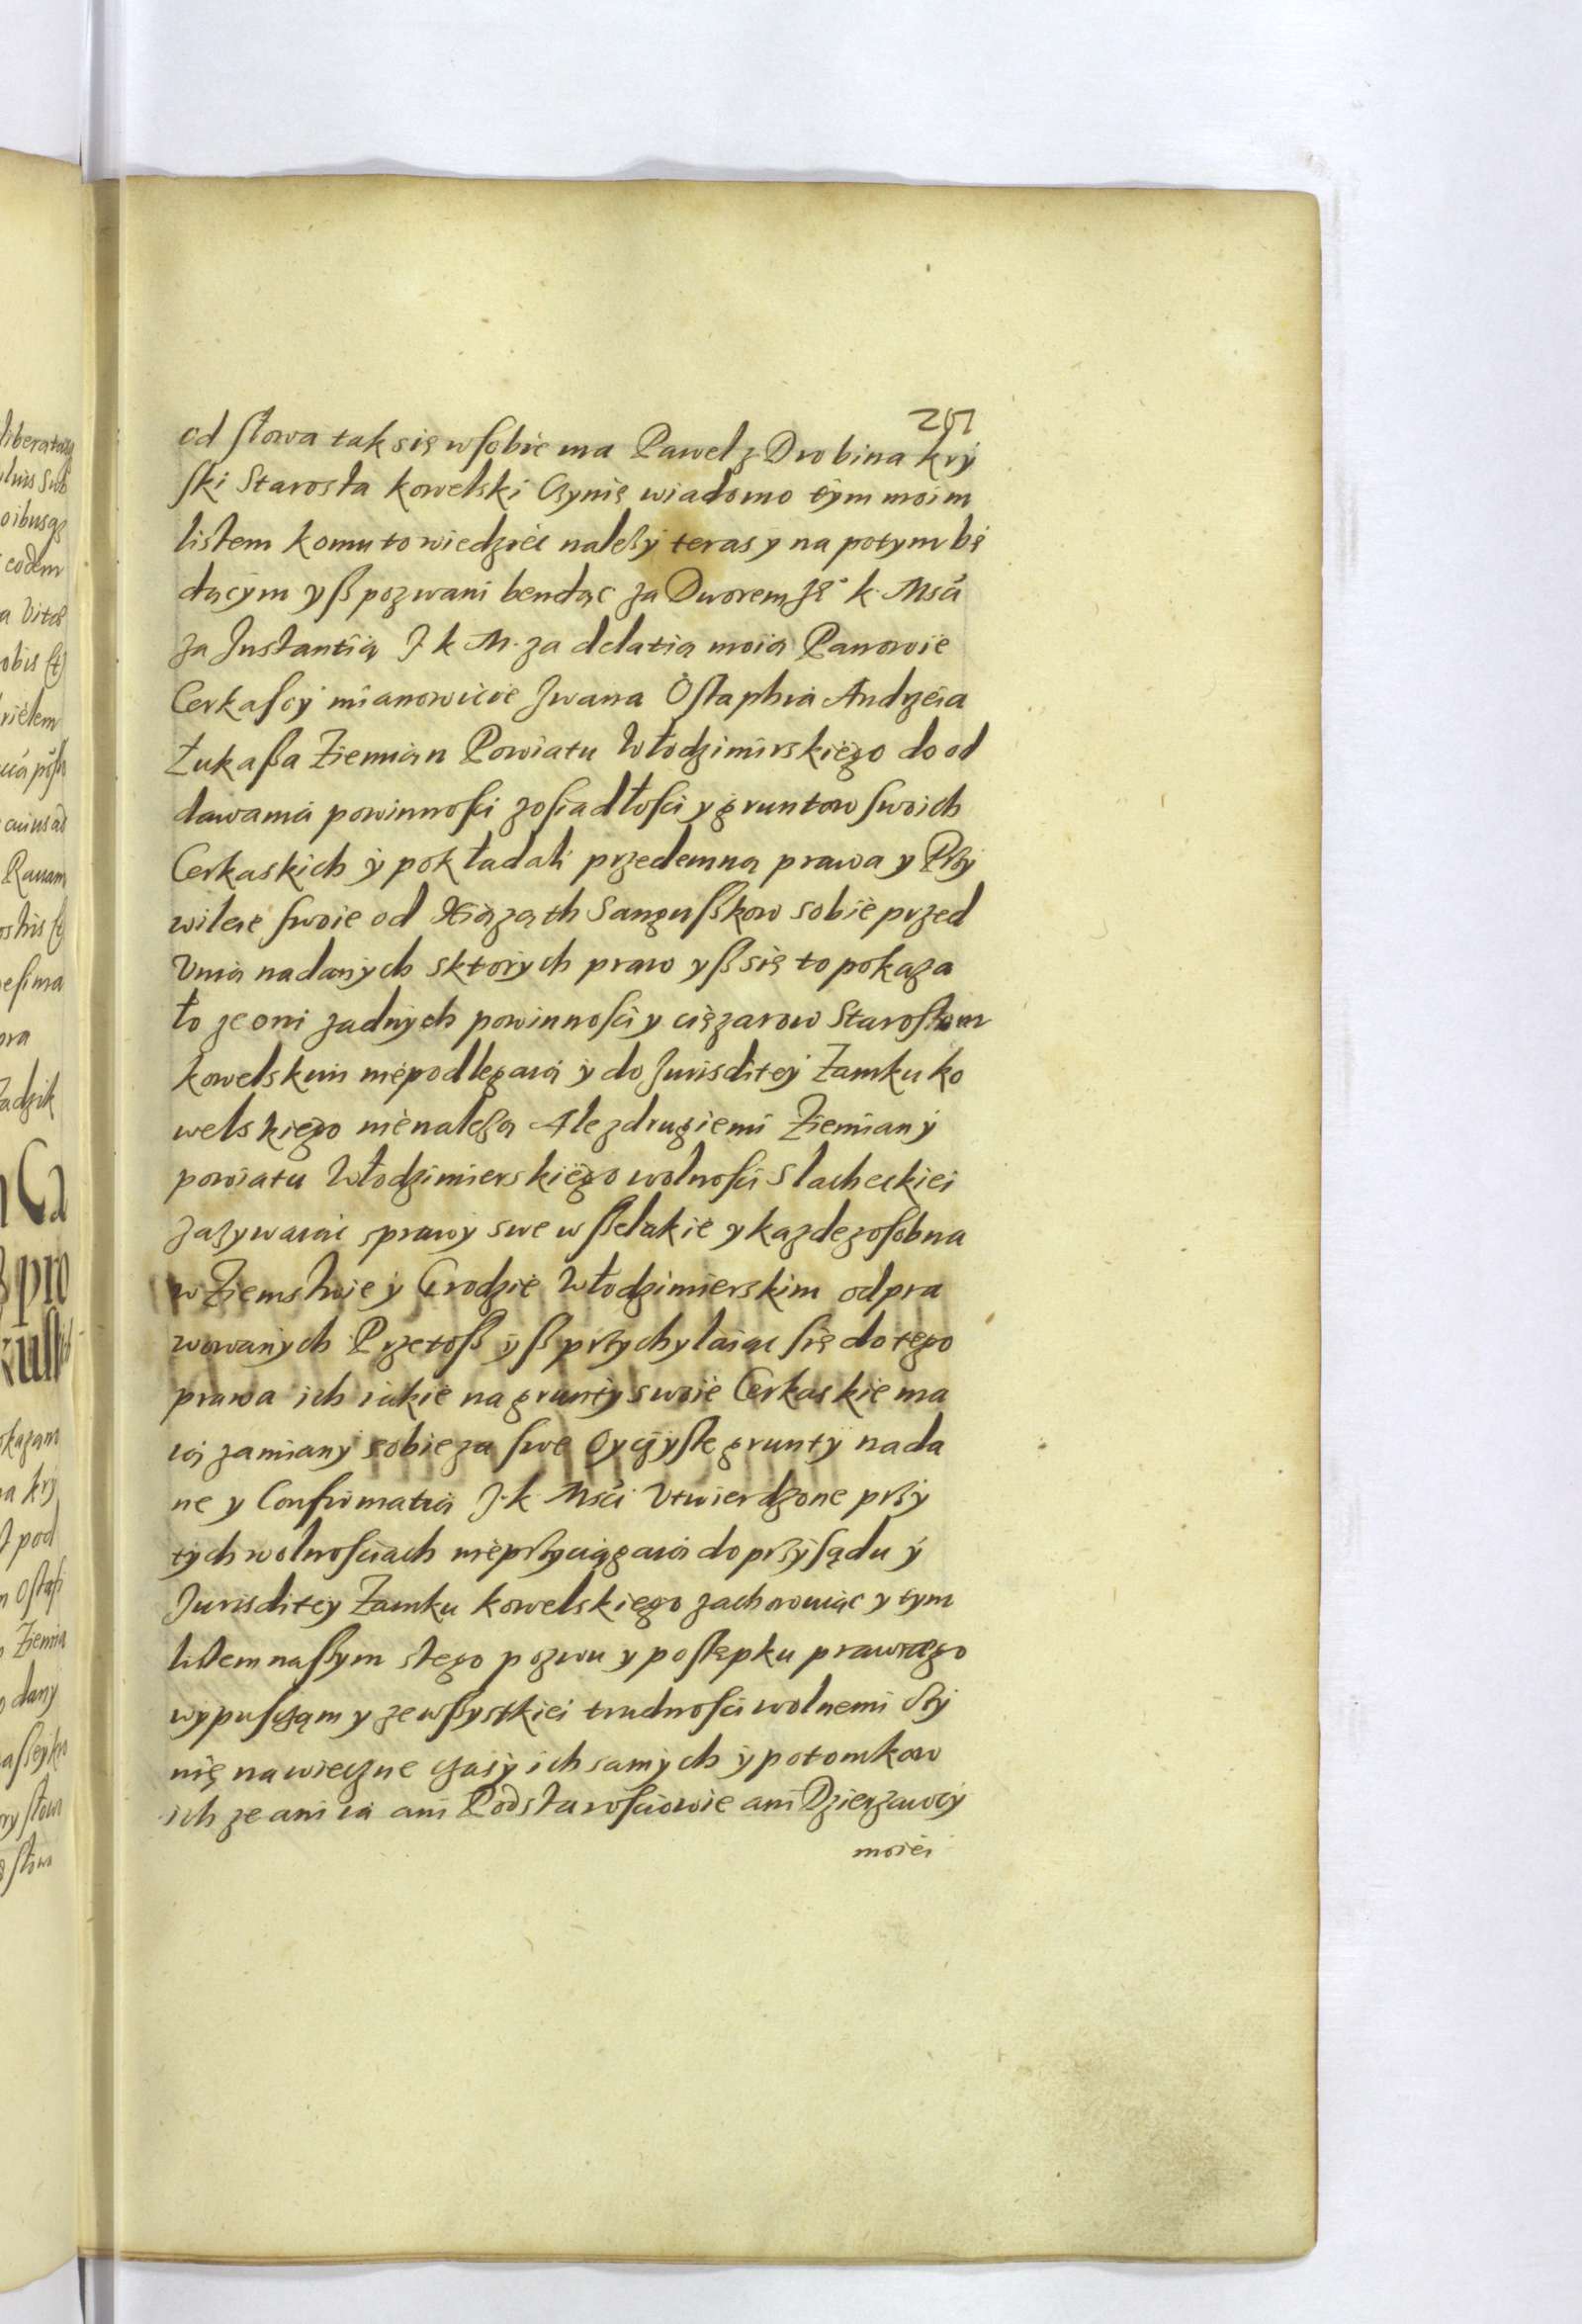 od słowa tak się w sobie ma Pawel z Drobina kry
ski Starosta kowelski Czynię wiadomo tym moim
listem komu to wiedziec nalezy teras y na potym bę
dącym yß pozwani bendąc za Dworem Je° k. Msći
za Instantią J k M. za delatią moią Panowie
Cerkascy mianowicie Iwana Ostaphia Andrzeia
Łukaßa Ziemian Powiatu Włodzimirskiego do od
dawania powinnosci z osiadłosci y gruntow swoich
Cerkaskich y pokładali przedemną prawa y Przy
wileie swoie od Xiąząth Sangußkow sobie przed
Unią nadanych sktorych praw yß się to pokaza
ło ze oni zadnych powinnosci y cięzarow Starostom
kowelskim niepodlegaią y do Jurisditey Zamku ko
welskiego nienalezą Ale z drugiemi Ziemiany
powiatu Włodzimierskiego wolnosci Slacheckiei
zazywaiąc sprawy swe wßelakie y kazde z osobna
w Ziemstwie y Grodzie Włodzimierskim odpra
wowanych Przetoß yß przychylaiąc się do tego
prawa ich iakie na grunty swoie Cerkaskie ma
ią zamiany sobie za swe Oyczyste grunty nada
ne y Confirmatią J. k Msći Utwierdzone przy
tych wolnosciach nieprzyciągaią do przysądu y
Jurisditey Zamku kowelskiego zachowuiąc y tym
listem naßym stego pozwu y postępku prawnego
wypusczam y ze wßystkiei trudnosci wolnemi czy
nię na wieczne czasy ich samych y potomkow
ich ze ani ia ani Podstarosciowie ani Dzierzawcy
moiei